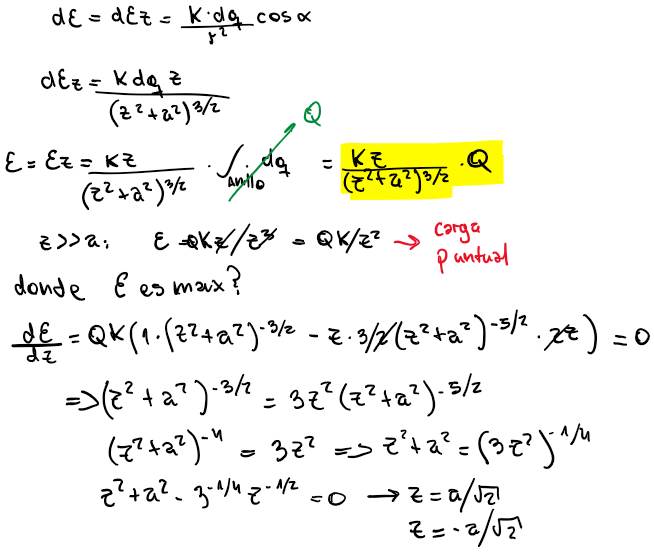 dE = dEz = K·dq/r² cosα
dEz = K dq z/(z²+a²)^3/2
Q
E = Ez = Kz/(z²+a²)^3/2 · ∫Anillo dq = Kz/(z²+a²)^3/2 · Q
z>>a: E = QKz/z³ = QK/z² → carga puntual
donde E es max?
dE/dz = QK(1·(z²+a²)^-3/2 - z·3/2(z²+a²)^-5/2 · 2z) = 0
=> (z²+a²)^-3/2 = 3z²(z²+a²)^-5/2
(z²+a²)^-4 = 3z² => z²+a² = (3z²)^-1/4
z²+a² - 3^-1/4 z^-1/2 = 0 → z = a/√2
z = -a/√2